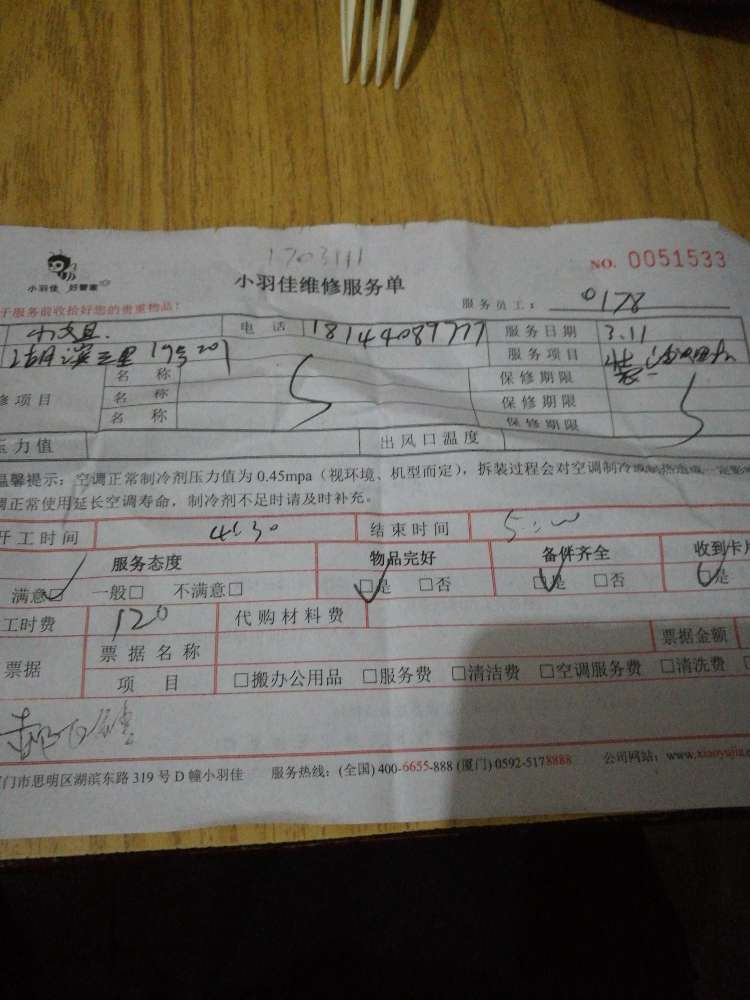 1703111
小羽佳 好管家
小羽佳维修服务单
NO. 0051533
于服务前收拾好您的贵重物品!
服务员工: 0178
电 话 18144089777 服务日期 3.11
三里 19号201 服务项目
修项目 名 称 保修期限
名 称 保修期限
名 称 保修期限
压力值 出风口温度
温馨提示:空调正常制冷剂压力值为 0.45mpa(视环境、机型而定),拆装过程会对空调制冷
调正常使用延长空调寿命,制冷剂不足时请及时补充。
开工时间 4:30 结束时间 5:00
服务态度 物品完好 备件齐全 收到卡片
满意□ 一般□ 不满意□ □是 □否 □是 □否 □是
工时费 120 代购材料费
票据 票据名称 票据金额
项 目 □搬办公用品 □服务费 □清洁费 □空调服务费 □清洗费
门市思明区湖滨东路 319 号 D 幢小羽佳 服务热线:(全国) 400-6655-888 (厦门) 0592-5178888 公司网站:www.xiaoyujia